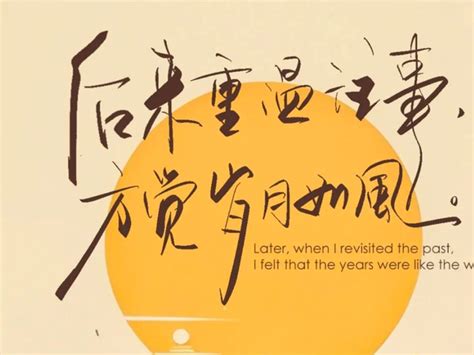 后来重温往事，
方觉岁月如風。
Later, when I revisited the past,
I felt that the years were like the w